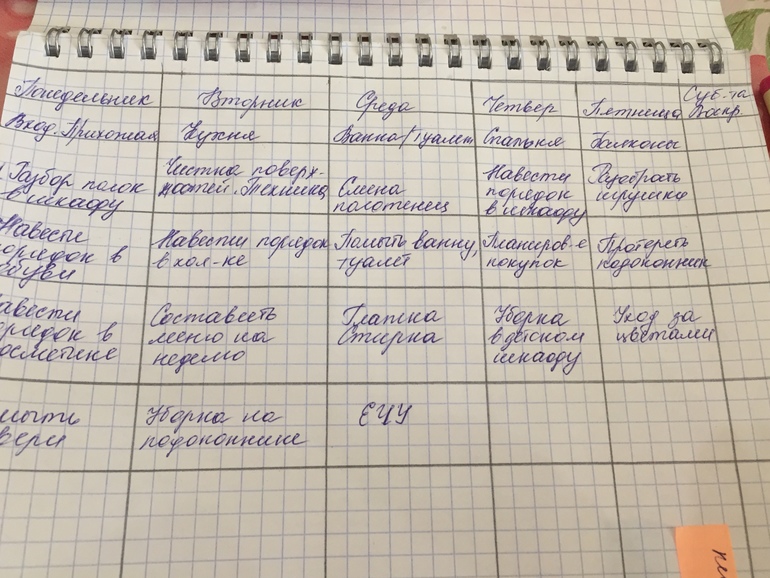 Понедельник
Вторник
Среда
Четвер
Пятница
Суб-та
Воскр.
Вход. Прихожая
Кухня
Ванна/туалет
Спальня
Балконы
Разбор полок
в шкафу
Чистка поверх-
ностей. Техника
Смена
полотенец
Навести
порядок
в шкафу
Разобрать
игрушки
Навести
порядок в
обуви
Навести порядок
в хол-ке
Помыть ванну,
туалет
Планиров-е
покупок
Протереть
подоконник
Навести
порядок в
косметике
Составсть
меню на
неделю
Глажка
Стирка
Уборка
в детском
шкафу
Уход за
цветами
мыть
вери
Уборка на
подоконнике
ЕЦУ